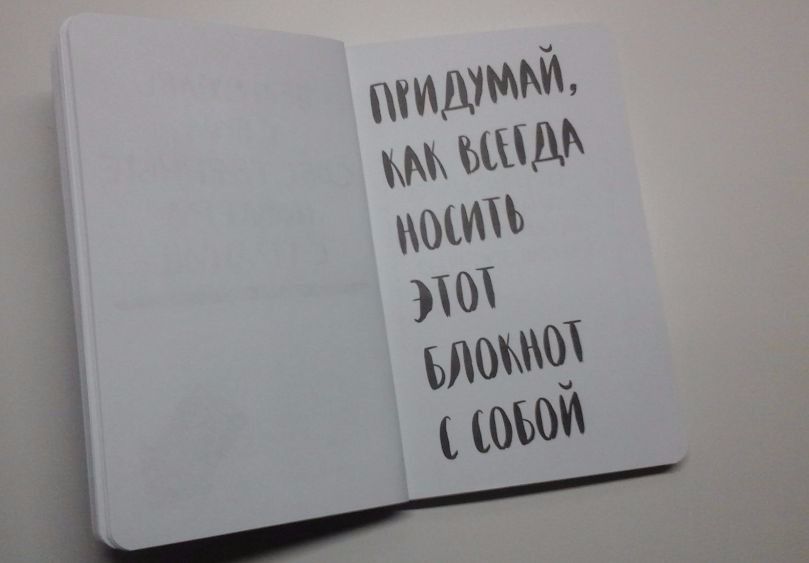 ПРИДУМАЙ,
КАК ВСЕГДА
НОСИТЬ
ЭТОТ
БЛОКНОТ
С СОБОЙ